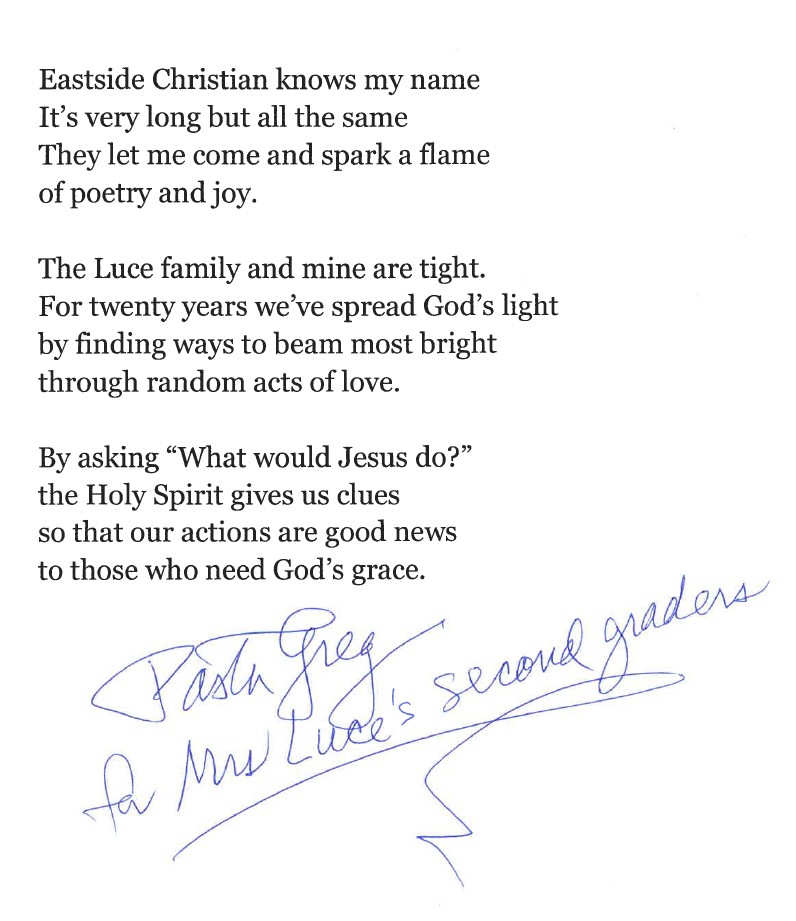 Eastside Christian knows my name
It’s very long but all the same
They let me come and spark a flame
of poetry and joy.
The Luce family and mine are tight.
For twenty years we’ve spread God’s light
by finding ways to beam most bright
through random acts of love.
By asking “What would Jesus do?”
the Holy Spirit gives us clues
so that our actions are good news
to those who need God’s grace.
Pastor Greg
for Mrs Luce's second graders